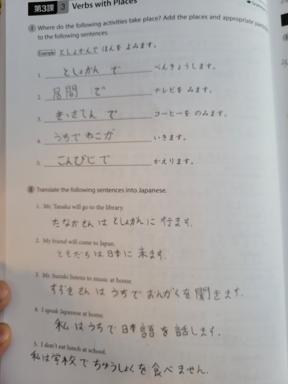 第3課 3 Verbs with Places
Where do the following activities take place? Add the places and appropriate
to the following sentences.
Example としょかんで ほんを よみます。
1. としょかん で べんきょうします。
2. 居間 で テレビを みます。
3. きっさてん で コーヒーを のみます。
4. うちで ねこが いきます。
5. こんびにで かえります。
Translate the following sentences into Japanese.
1. Mr. Tanaka will go to the library.
たなかさんは としょかんに 行ます.
2. My friend will come to Japan.
ともだちは 日本に 来ます.
3. Mr. Suzuki listens to music at home.
すずきさんは うちで おんがくを 聞きます.
4. I speak Japanese at home.
私は うちで 日本語を 話します.
5. I don't eat lunch at school.
私は学校で ちゅうしょくを 食べません.